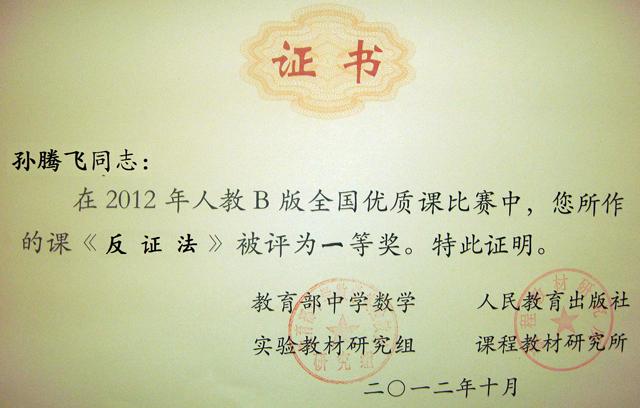 证书
孙腾飞同志：
在2012年人教B版全国优质课比赛中，您所作
的课《反证法》被评为一等奖。特此证明。
教育部中学数学 人民教育出版社
实验教材研究组 课程教材研究所
研究组
二〇一二年十月